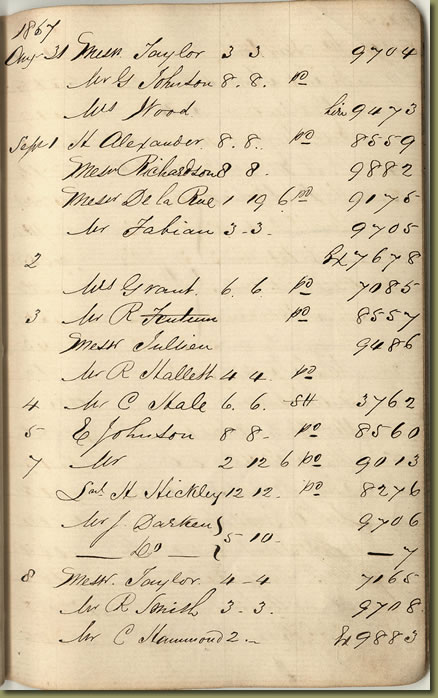 1867
Aug 31 Messrs. Taylor 3 3 9704
Mr G Johnson 8. 8. pd
Mrs Wood hire 9473
Sept 1 H Alexander 8. 8. pd 8559
Messrs Richardson 8 8. 9882
Messrs De la Rue 1 19 6 pd 9175
Mr Fabian 3-3. 9705
2 7678
Mrs Grant 6. 6. pd 7085
3 Mr R pd 8557
Messrs Jullien 9486
Mr R Hallett 4 4. pd
4 Mr C Hale 6. 6. SH 3762
5 E Johnson 8 8- pd 8560
7 Mr 2 12 6 pd 9013
H Hickley 12 12. pd 8276
Mr J Darken } 5 10. 9706
— Do — — 7
8 Messrs. Taylor 4-4 7165
Mr R Smith 3-3. 9708
Mr C Hammond 2.- 9883